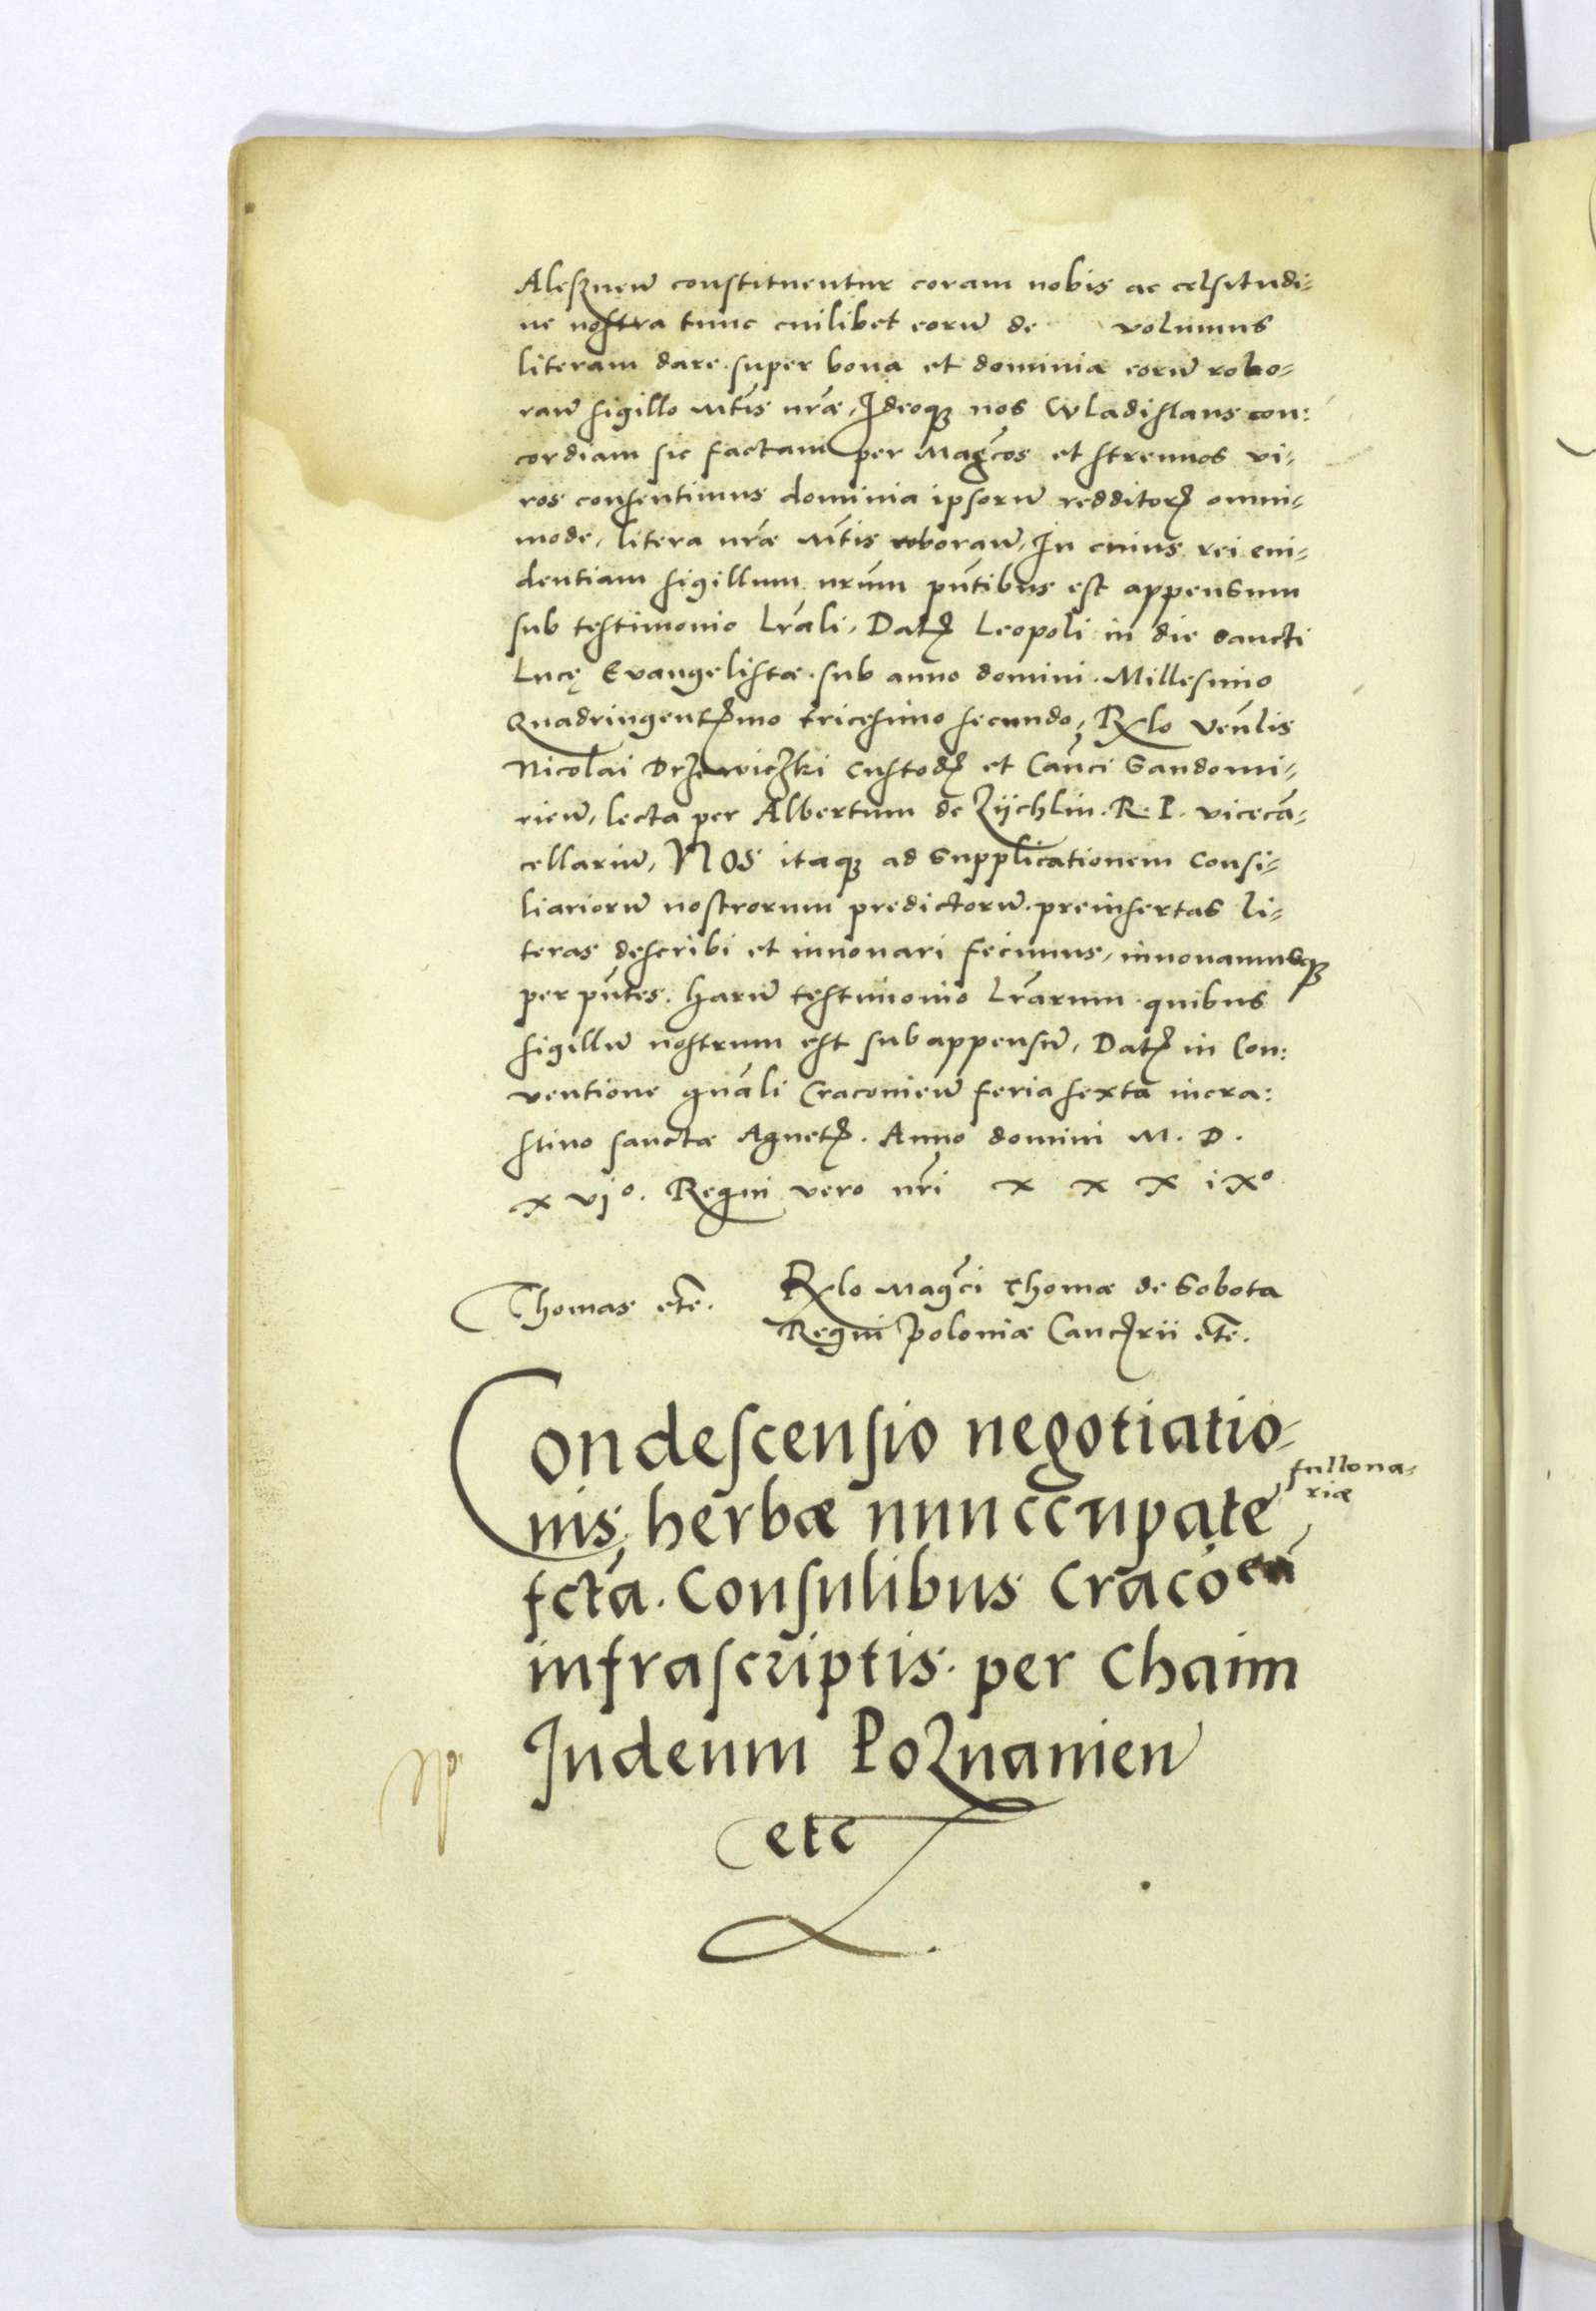 Alesznen̄ constituentur coram nobis ac celsitudi-
ne nostra tunc cuilibet eorū de volumus
literam dare. super bona et dominia eorū robo-
ran̄ sigillo Mt̄is nr̄æ, Ideoq3 nos Wladislaus con:
cordiam sic factam per Magc̄os et strennos vi-
ros consentimus dominia ipsorū redditor omni-
mode, litera nr̄æ Mt̄is roboran̄, In cuius rei eui-
dentiam sigillum nr̄um pn̄tibus est appensum
sub testimonio Lr̄ali, Dat Leopoli in die Sancti
Lucę Evangelistæ. sub anno domini. Millesimo
Quadringentmo tricesimo secundo, Rlo Ven̄lis
Nicolai Drzewiczki Custod et Can̄ci Sandomi-
rien̄, lecta per Albertum de Zÿchlin. R. P. vicecā-
cellariū, NOS itaq3 ad Supplicationem Consi-
liariorū nostrorum predictorū. preinsertas li-
teras describi et innouari fecimus, innouamusq3
per pn̄tes. harū testimonio Lr̄arum. quibus
sigillū nostrum est subappensū, Dat in Con:
ventione gn̄ali Cracouien̄ feria sexta incra:
stino sanctæ Agnet. Anno domini M. D.
x vjo. Regni vero nr̄i x x x ixo
Thomas etc̄.
Rlo Magc̄i Thomæ de Sobota
Regni Poloniæ Cancrii etc̄.
Condescensio negotiatio-
nis, herbæ nunccupate fullona-
riæ
fctā. Consulibus Cracoen̄
infrascriptis. per Chaim
Iudeum Poznanien̄
etc